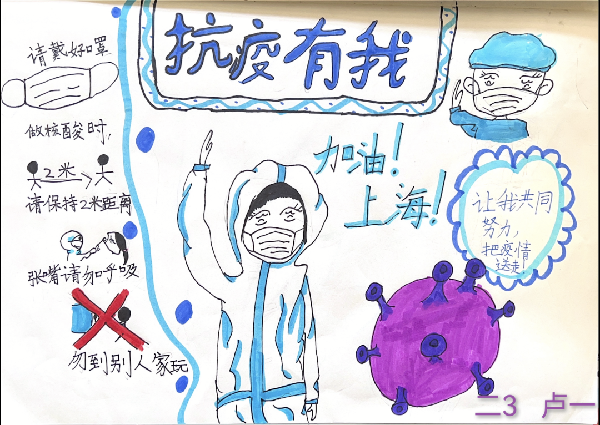 抗疫有我
请戴好口罩
做核酸时,
2米
请保持2米距离
张嘴请勿呼吸
勿到别人家玩
加油!
上海!
让我共同
努力,
把疫情
送走
二3 卢一